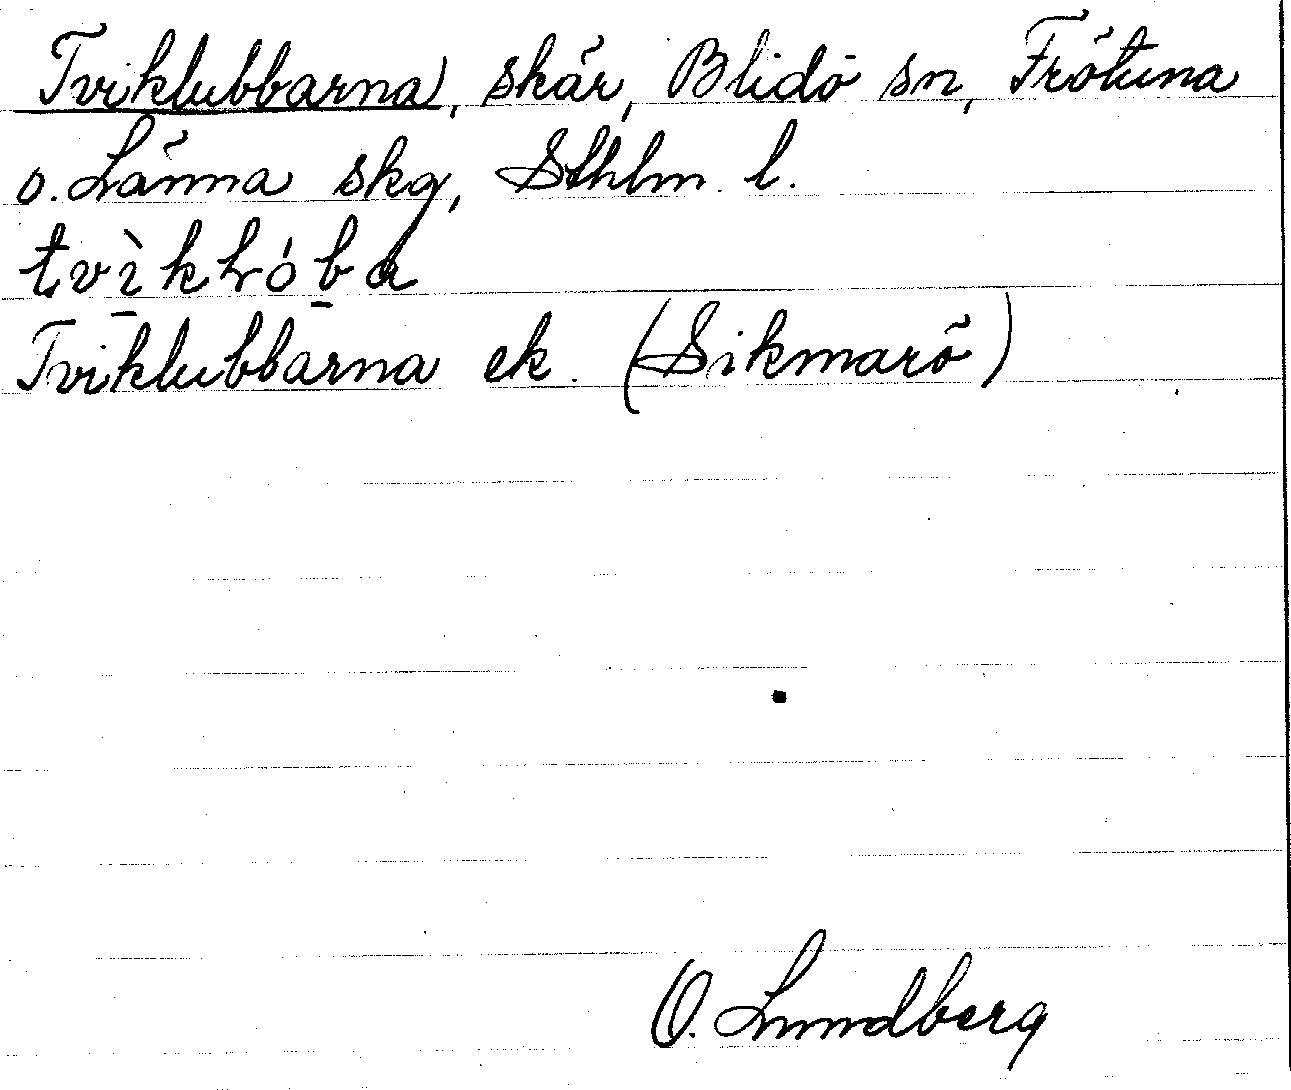 Tviklubbarna, skär, Blidö sn, Frötuna
o. Länna skg, Sthlm. l.
tvìklóba
Tviklubbarna ek. (Sikmarö)
O. Lundberg